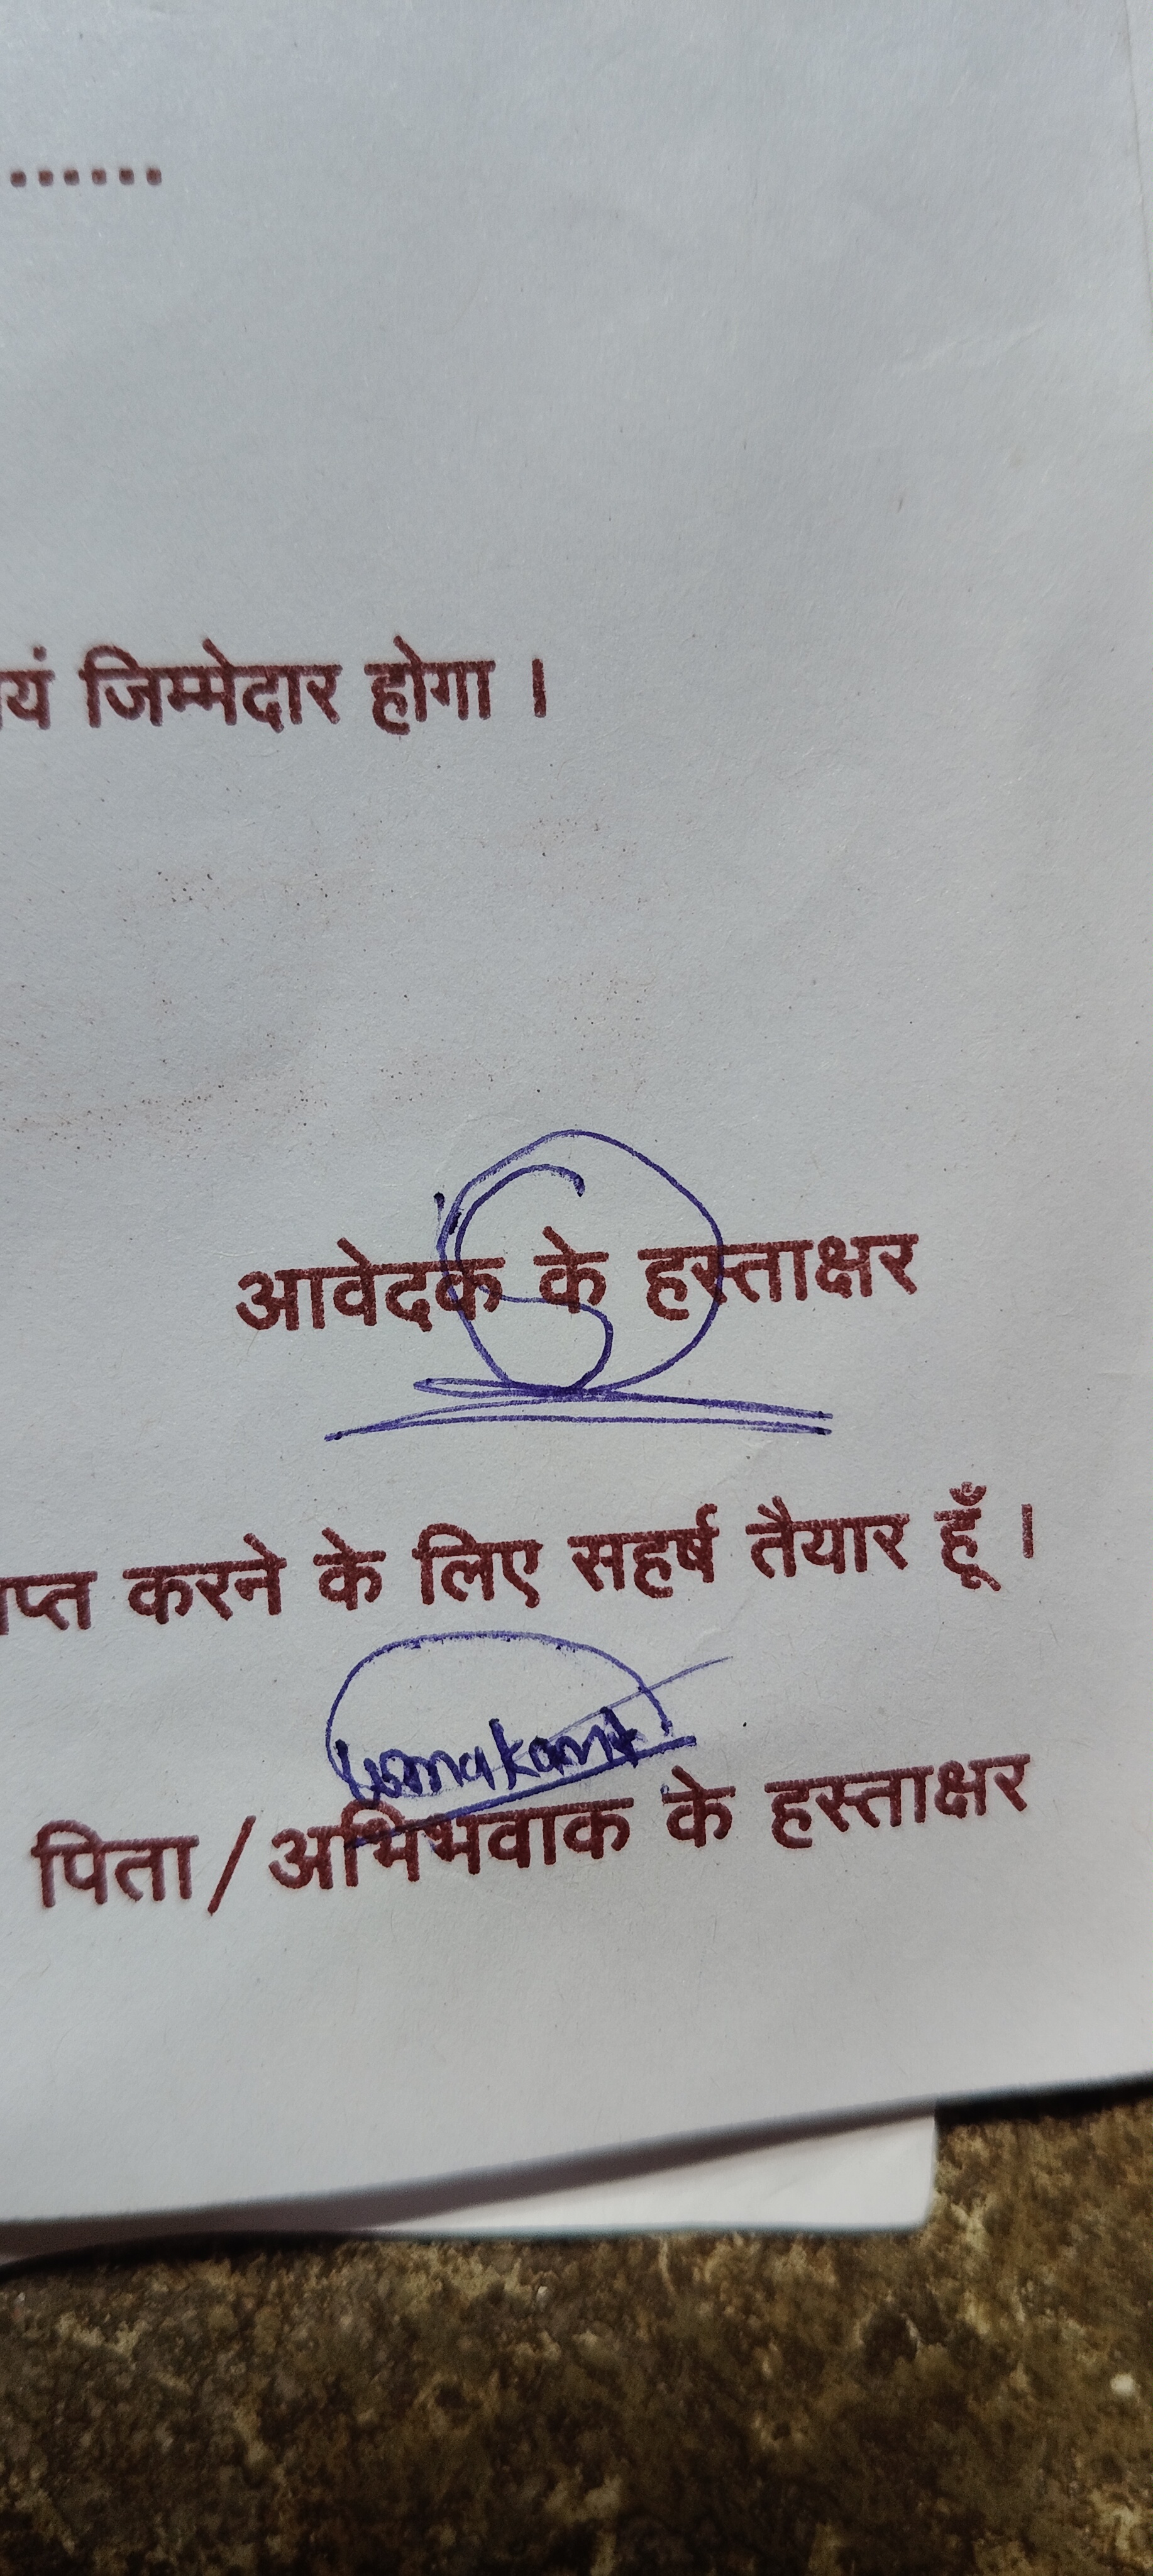 ......
यं जिम्मेदार होगा ।
आवेदक के हस्ताक्षर
प्त करने के लिए सहर्ष तैयार हूँ ।
Umakant
पिता/अभिभवाक के हस्ताक्षर